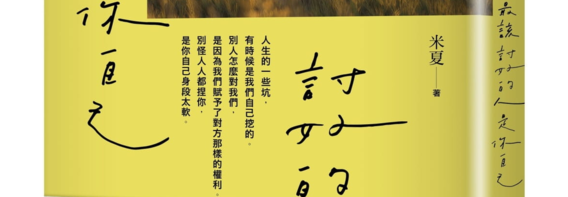 最該討好的人是你自己
米夏——著
討好的
人生的一些坑，
有時候是我們自己挖的。
別人怎麼對我們，
是因為我們賦予了對方那樣的權利。
別怪人人都捏你，
是你自己身段太軟。
你自己